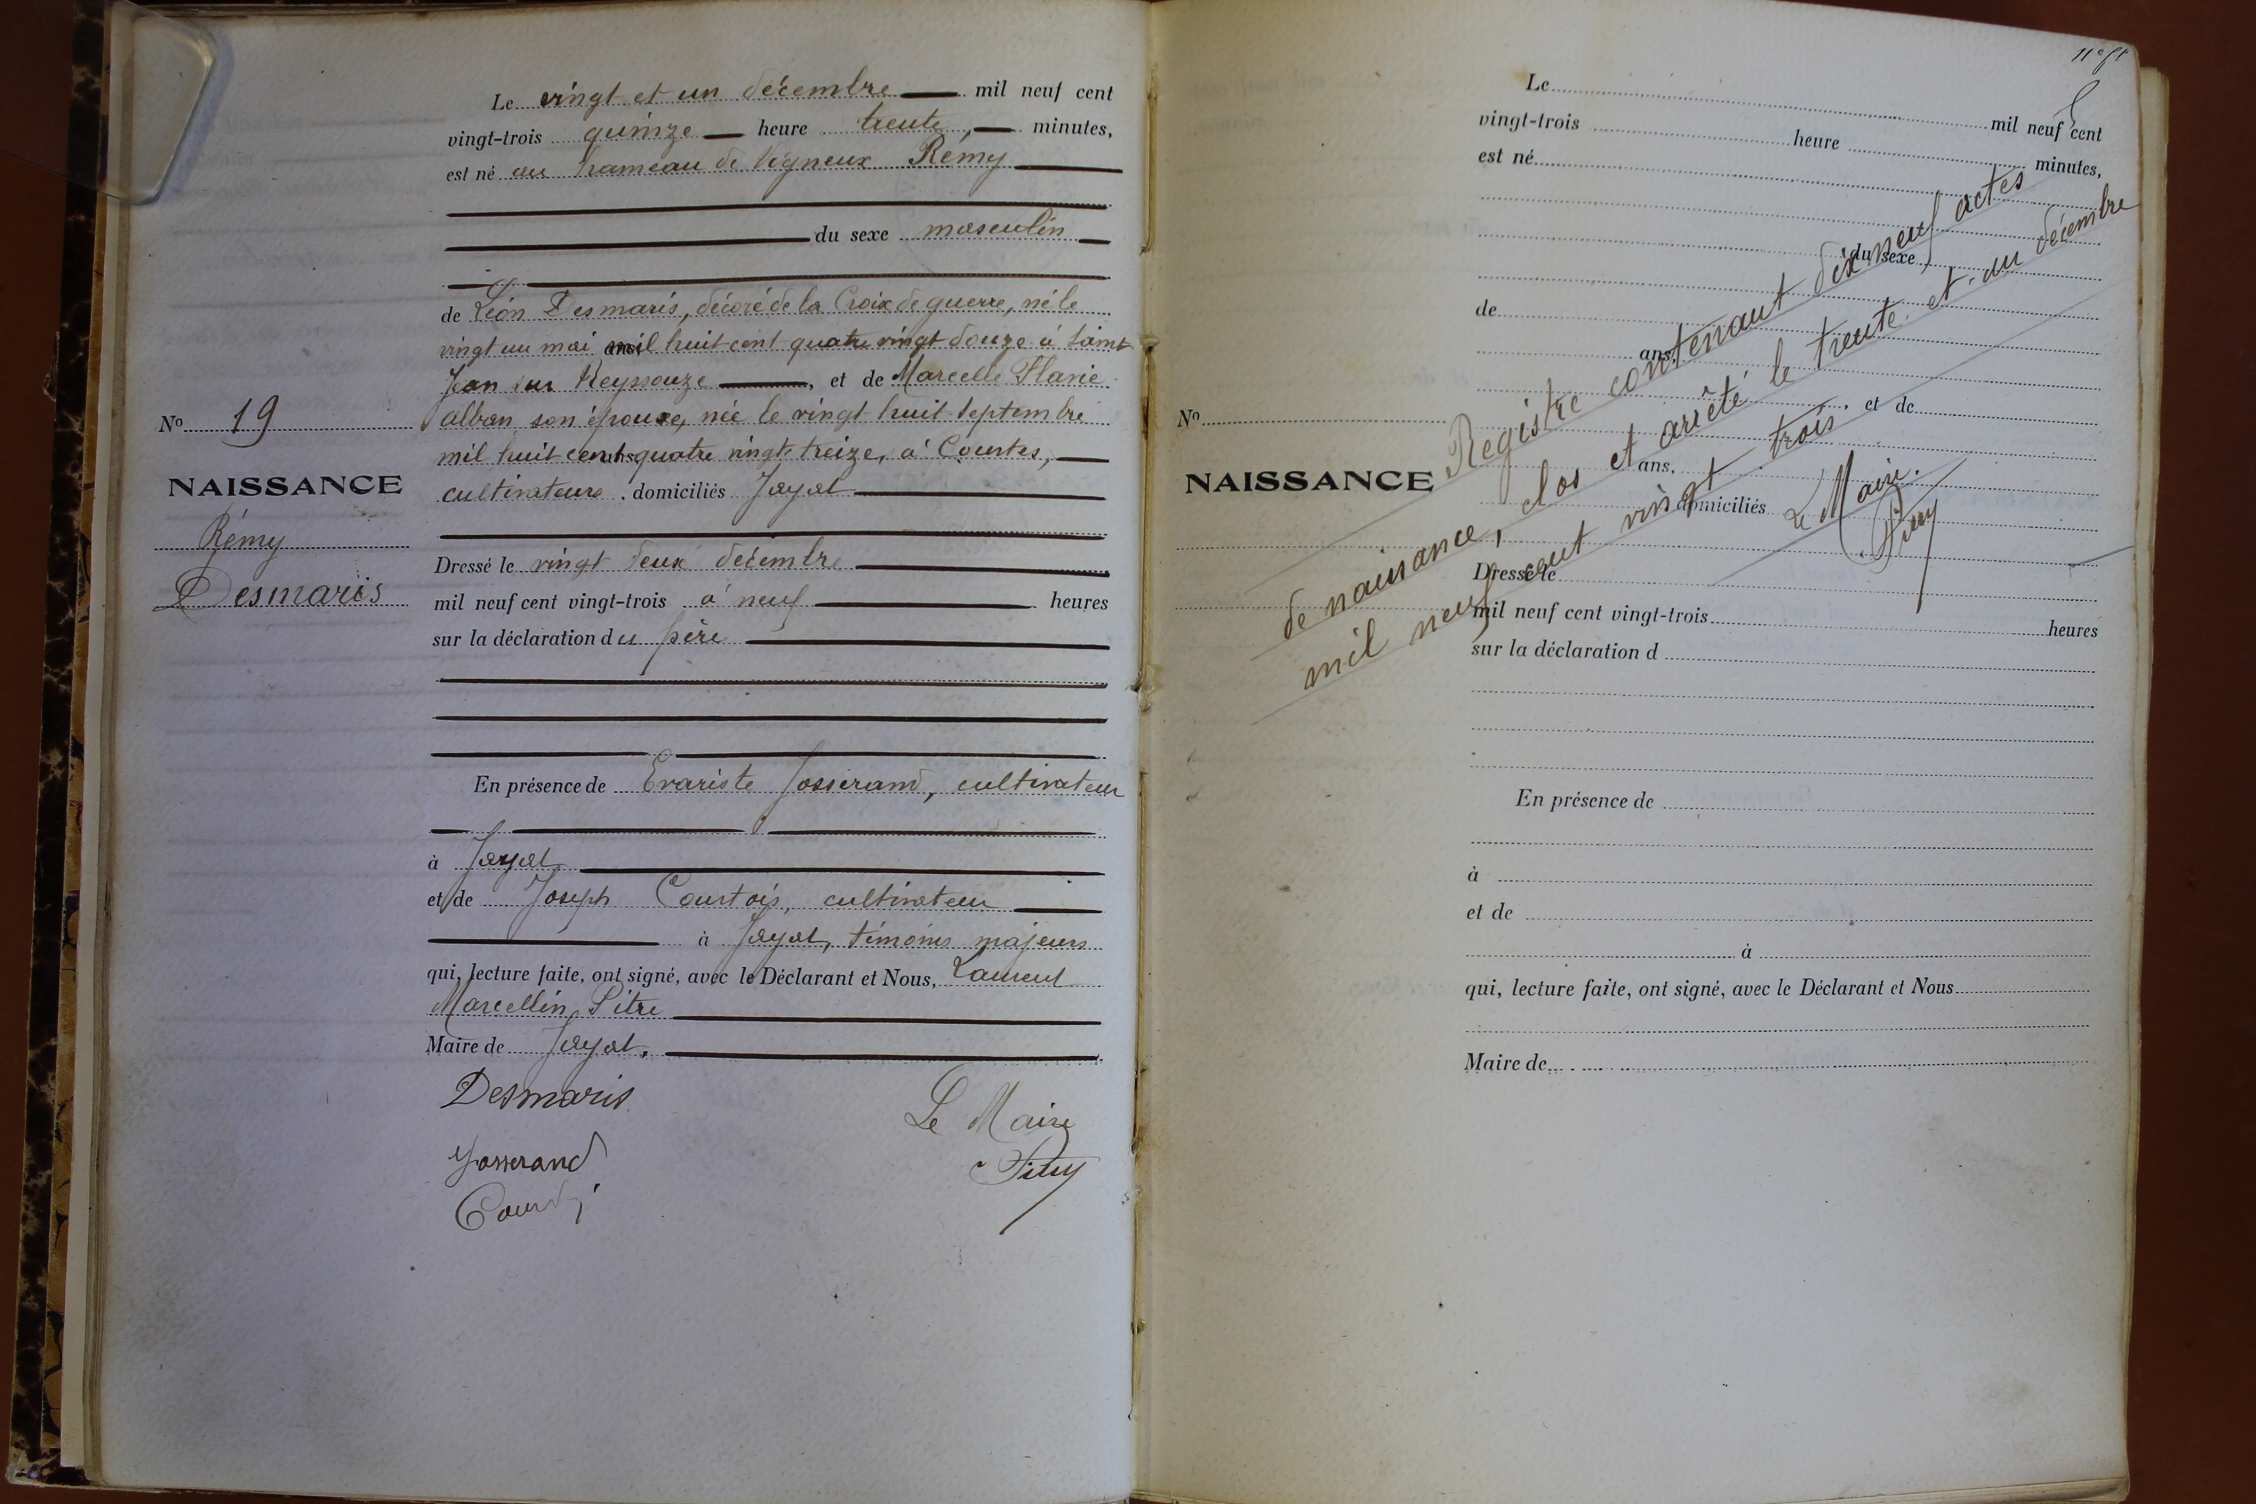 Le vingt et un décembre mil neuf cent
vingt-trois quinze heure trente, minutes,
est né au hameau de Vigneux Rémy
du sexe masculin
de Léon Desmaris, décoré de la Croix de guerre, né le
vingt un mai mil huit cent quatre vingt douze à Saint
Jean sur Reyssouze, et de Marcelle Flavie
Alban son épouse, née le vingt huit Septembre
mil huit cent quatre vingt treize, à Courtes,
cultivateurs. domiciliés Jayat
Dressé le vingt deux décembre
mil neuf cent vingt-trois à neuf heures
sur la déclaration du père
En présence de Evariste Josserand, cultivateur
à Jayat
et de Joseph Courtois, cultivateur
à Jayat, témoins majeurs
qui, lecture faite, ont signé, avec le Déclarant et Nous, Laurent
Marcellin Pitre
Maire de Jayat.
No 19
NAISSANCE
Rémy
Desmaris
Desmaris
Josserand
Le Maire
Le
mil neuf cent
vingt-trois heure minutes,
est né
du sexe
de
ans,
et de
ans,
domiciliés
Dressé le
mil neuf cent vingt-trois heures
sur la déclaration d
En présence de
à
et de
à
qui, lecture faite, ont signé, avec le Déclarant et Nous
Maire de
No
NAISSANCE
Registre contenant dix neuf actes
de naissance, clos et arrêté le trente et un décembre
mil neuf cent vingt trois.
Le Maire.